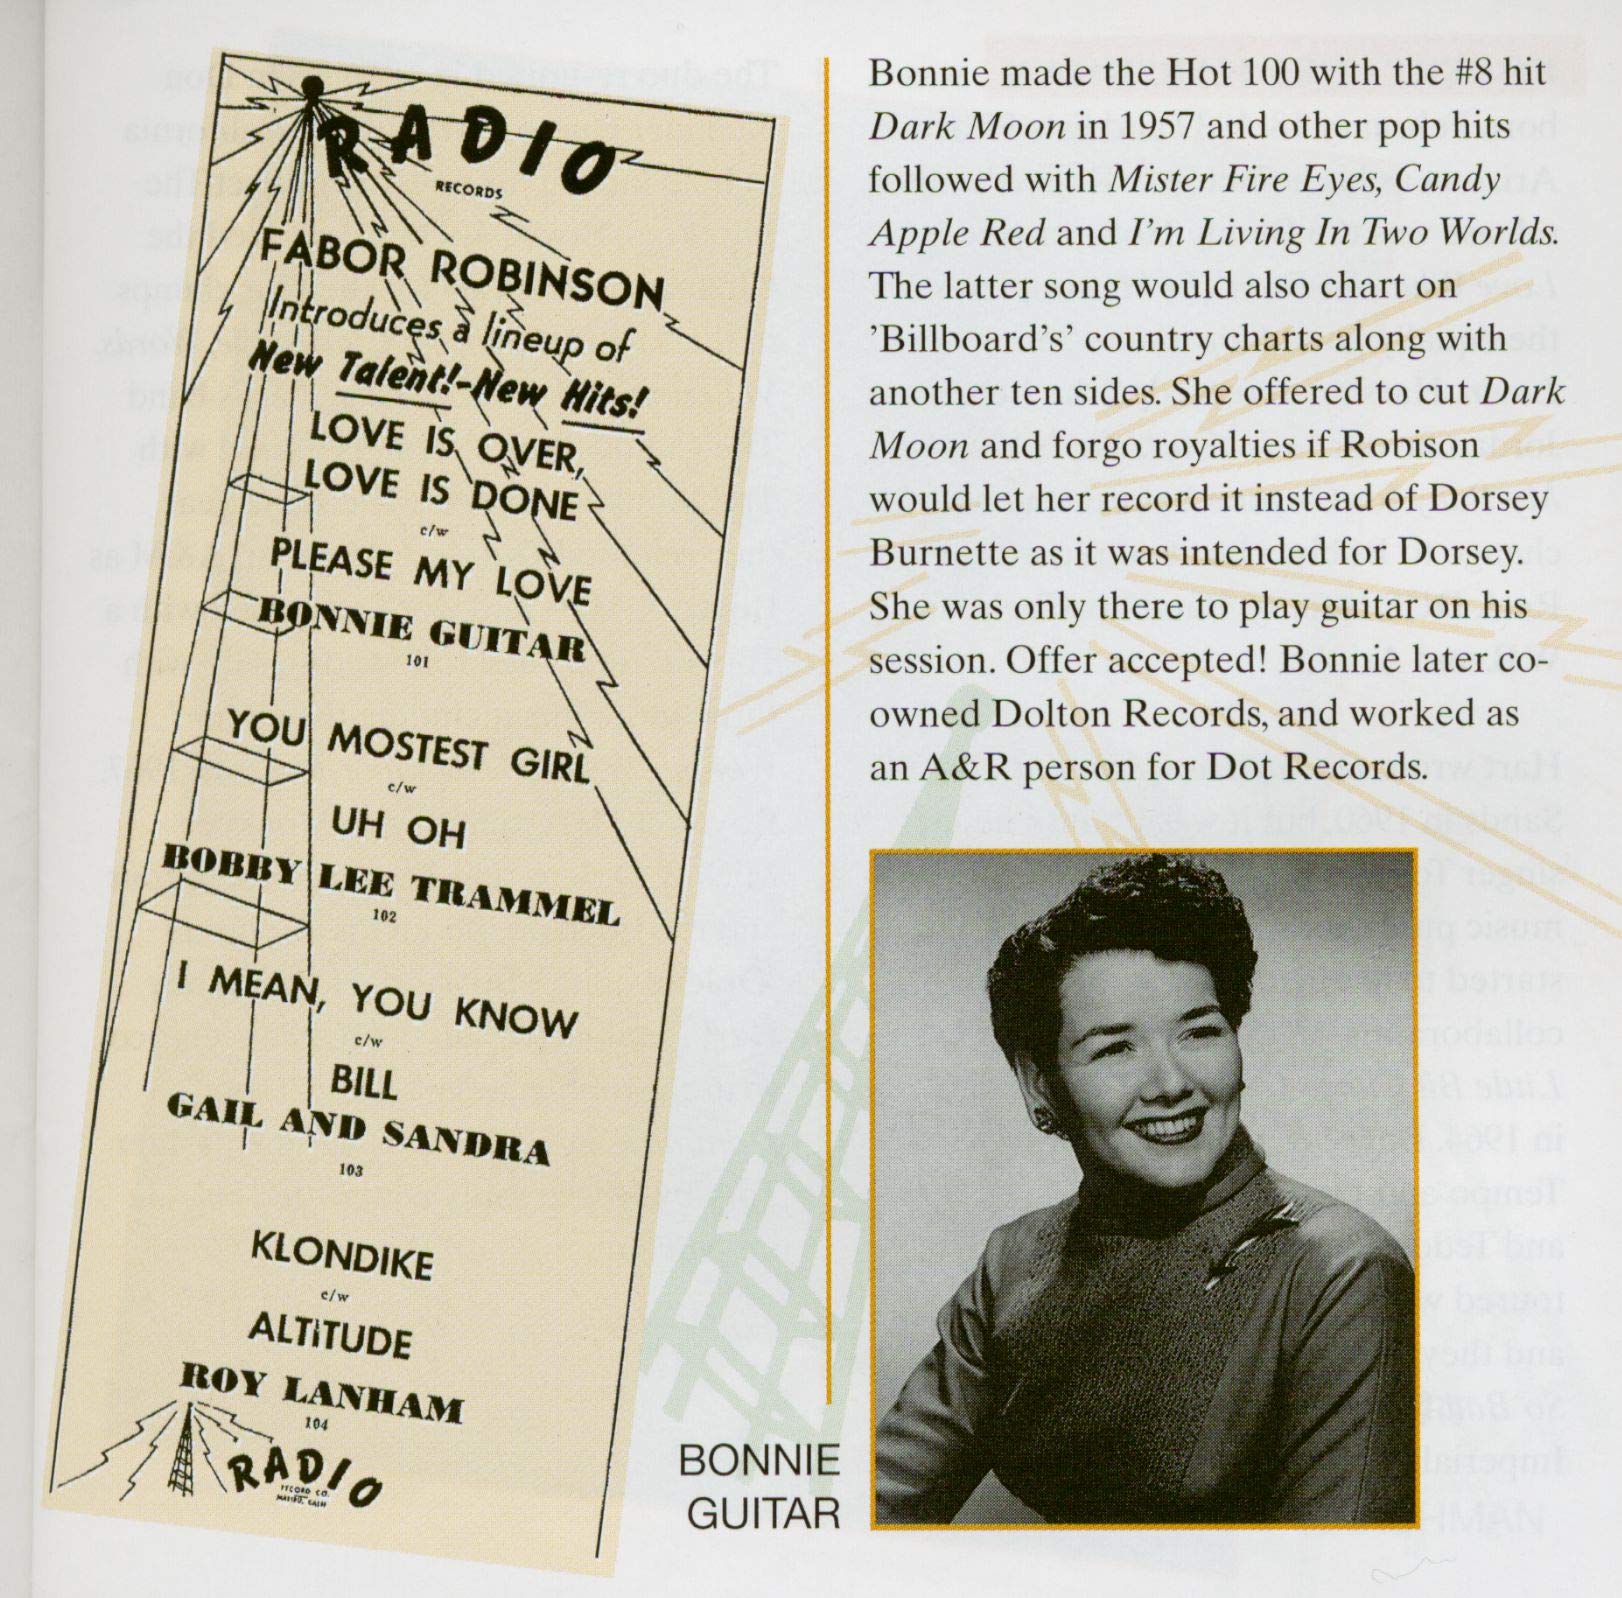 RADIO
RECORDS
FABOR ROBINSON
Introduces a lineup of
New Talent!-New Hits!
LOVE IS OVER,
LOVE IS DONE
c/w
PLEASE MY LOVE
BONNIE GUITAR
101
YOU MOSTEST GIRL
c/w
UH OH
BOBBY LEE TRAMMEL
102
I MEAN, YOU KNOW
c/w
BILL
GAIL AND SANDRA
103
KLONDIKE
c/w
ALTiTUDE
ROY LANHAM
104
RADIO
RECORD CO.
Bonnie made the Hot 100 with the #8 hit
Dark Moon in 1957 and other pop hits
followed with Mister Fire Eyes, Candy
Apple Red and I'm Living In Two Worlds.
The latter song would also chart on
'Billboard's' country charts along with
another ten sides. She offered to cut Dark
Moon and forgo royalties if Robison
would let her record it instead of Dorsey
Burnette as it was intended for Dorsey.
She was only there to play guitar on his
session. Offer accepted! Bonnie later co-
owned Dolton Records, and worked as
an A&R person for Dot Records.
BONNIE
GUITAR